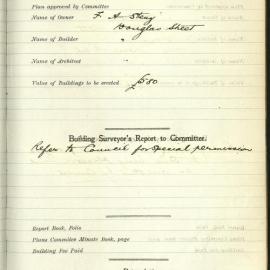 Plan approved by Committee
Name of Owner F. A.
Douglas Street
Name of Builder "
Name of Architect "
Value of Buildings to be erected £ 50
Building Surveyor's Report to Committee.
Refer to Council for special permission
Report Book, Folio
Plans Committee Minute Book, page
Building Fee Paid